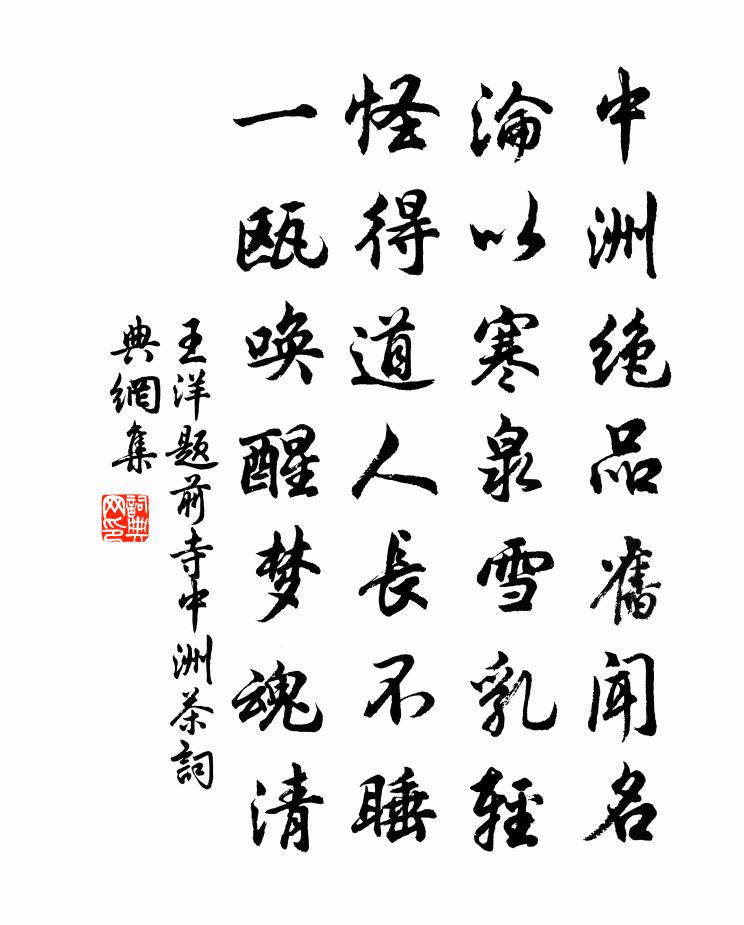 中洲绝品舊闻名
淪以寒泉雪乳輕
怪得道人長不睡
一甌唤醒梦魂清
王洋题前寺中洲茶詞
典網集
詞典网印